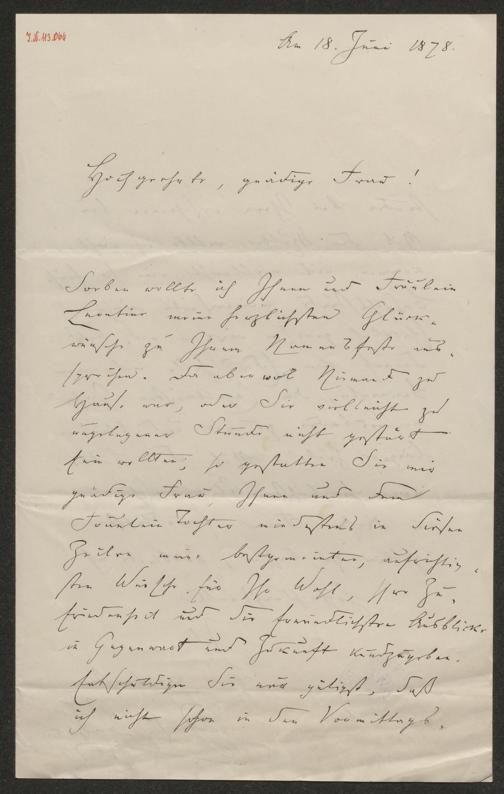 J.N. 113.066
Am 18. Juni 1878.
Hochgeehrte, gnädige Frau!
Soeben wollte ich Ihnen und Fräulein
Leontine meine herzlichsten Glück-
wünsche zu Ihrem Namensfeste aus-
sprechen. Da aber wol Niemand zu
Hause war, oder Sie vielleicht zu
ungelegener Stunde nicht gestört
sein wollten, so gestatten Sie mir
gnädige Frau, Ihnen und dem
Fräulein Tochter mindestens in diesen
Zeilen meine bestgemeinten, aufrichtig-
sten Wünsche für Ihr Wohl, Ihre Zu-
friedenheit und die freundlichsten Ausblicke
in Gegenwart und Zukunft kundzugeben.
Entschuldigen Sie nur gütigst, daß
ich nicht schon in den Vormittags-